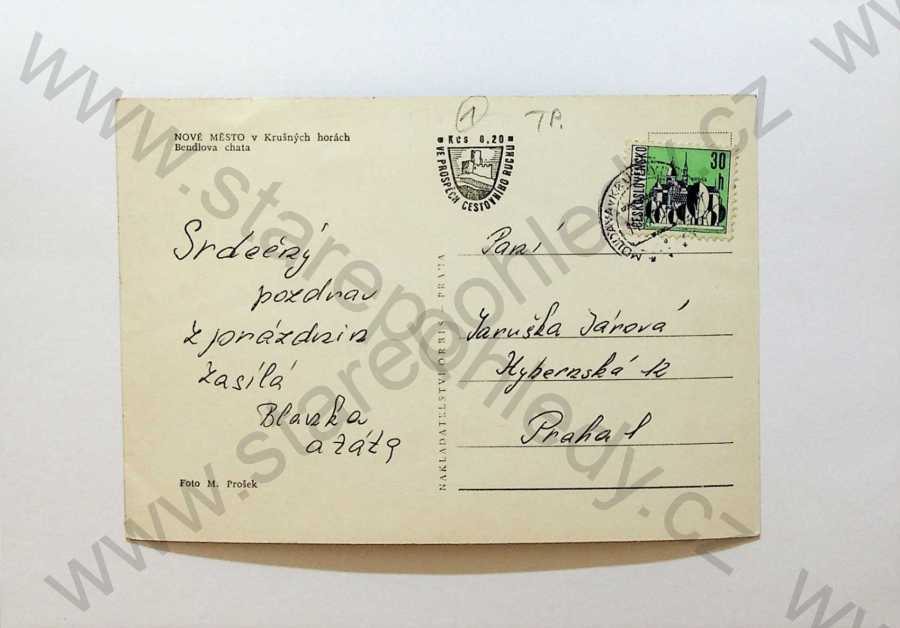 NOVÉ MĚSTO v Krušných horách
Bendlova chata
1
TP.
Kcs 0,20
VE PROSPĚCH CESTOVNÍHO RUCHU
30 h
ČESKOSLOVENSKO
MOLDAVA v KRUŠ
Srdečný
pozdrav
z prázdnin
zasílá
Blanka
a táta
Foto M. Prošek
NAKLADATELSTVÍ ORBIS – PRAHA
Paní
Jaruška Járová
Hybernská 12
Praha 1
www.starepohledy.cz
www.starepohledy.cz